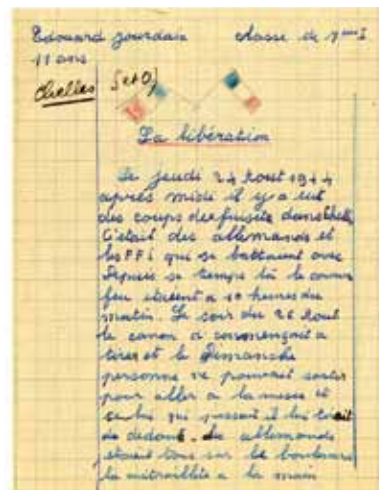 Edouard Jourdain classe de 7ème I
11 ans
Chelles (S et O)
La libération
Le jeudi 24 Aout 1944
après midi il y a eut
des coups de fusils dans
C'était des allemands et
les FFI qui se battaient avec
Depuis se temps là le couvre
feu étaient a 10 heures du
matin. Le soir du 26 Aout
le canon a commençait a
tirer et le Dimanche
personne ne pouvait sortir
pour aller a la messe et
celui qui passait il
de dedont. les allemands
étaient tous sur le boulevard
la mitraillète a la main